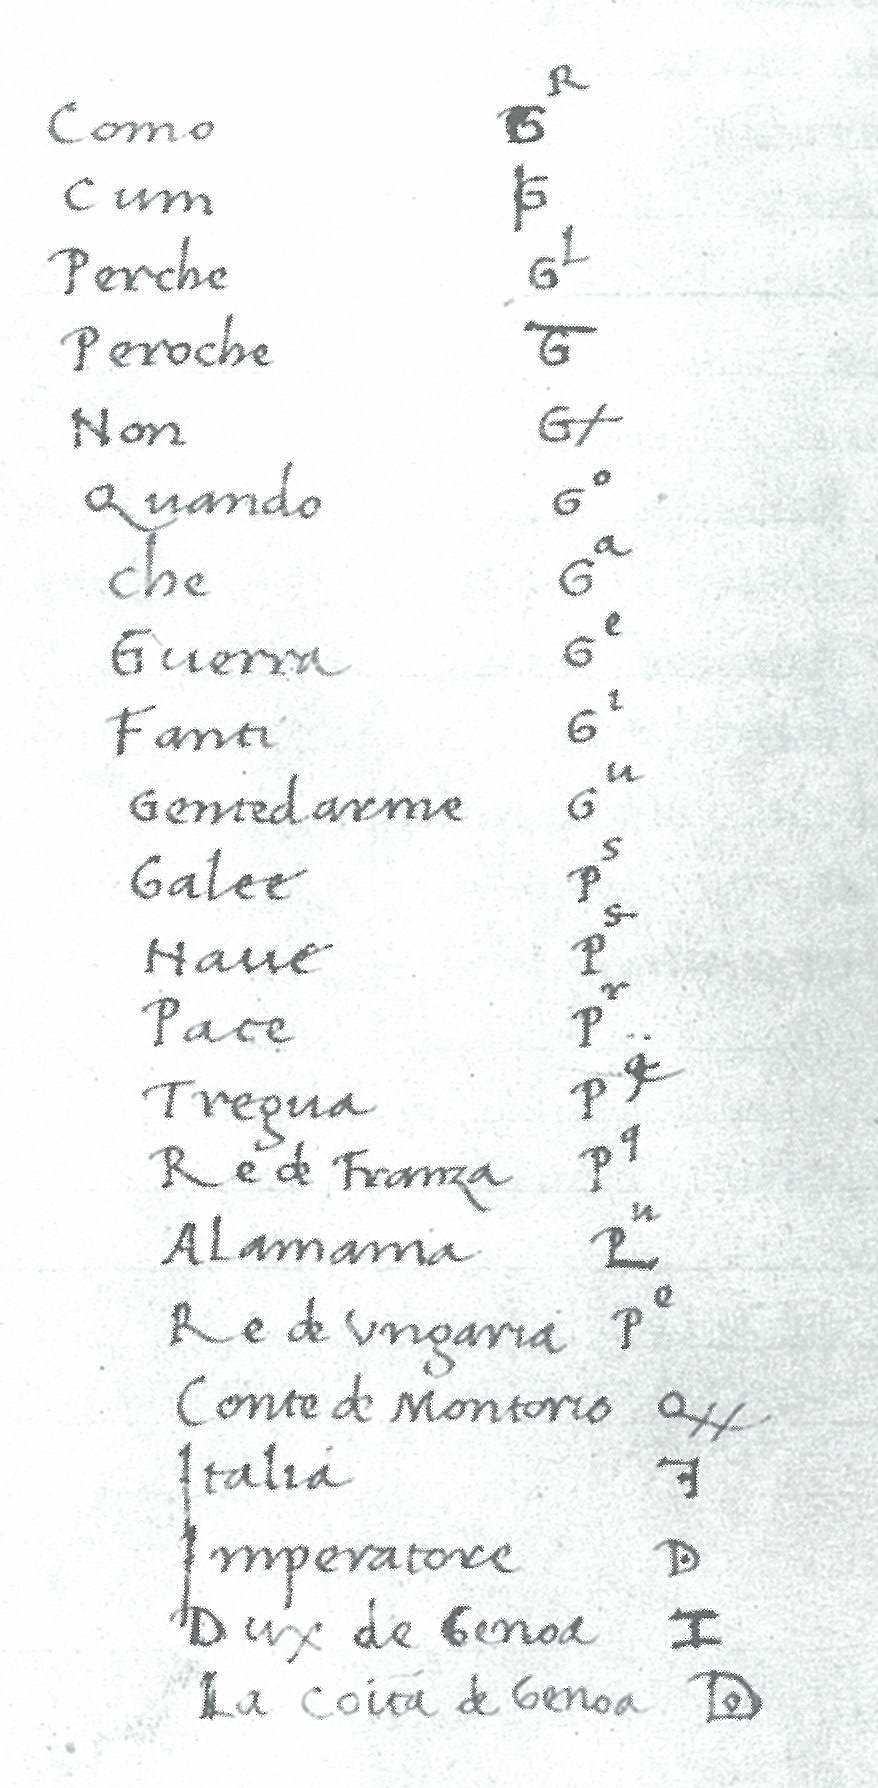 Como G^R
Cum G
Perche G^L
Peroche G
Non G+
Quando G^o
che G^a
Guerra G^e
Fanti G^i
Gentedarme G^u
Galee P^s
Naue P^s
Pace P^r
Tregua P
Re de Franza P^q
ALamania P^u
Re de Ungaria P^e
Conte de Montorio Q
Italia
Imperatore D
Dux de Genoa I
La coita de Genoa D